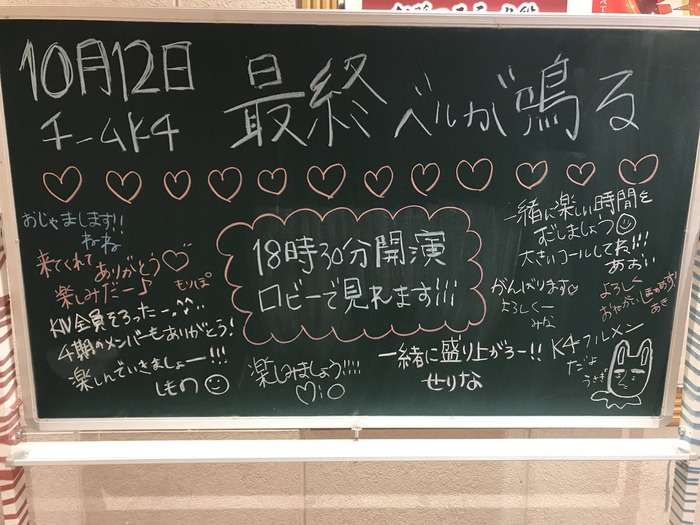 10月12日
チームK4
最終ベルが鳴る
おじゃまします!!
ねね
来てくれてありがとう♡
楽しみだー♪
もりぽ
KIV全員そろったー
4期のメンバーもありがとう!
楽しんでいきましょー!!!
しもの
18時30分開演
ロビーで見れます!!!
楽しみましょう!!!!
一緒に盛り上がろー!!
せりな
一緒に楽しい時間を
すごしましょう
大きいコールしてね!!!
あおい
がんばります♡
よろしくー
みな
よろしく
おねがい
あき
K4フルメン
だよ
うさぎ